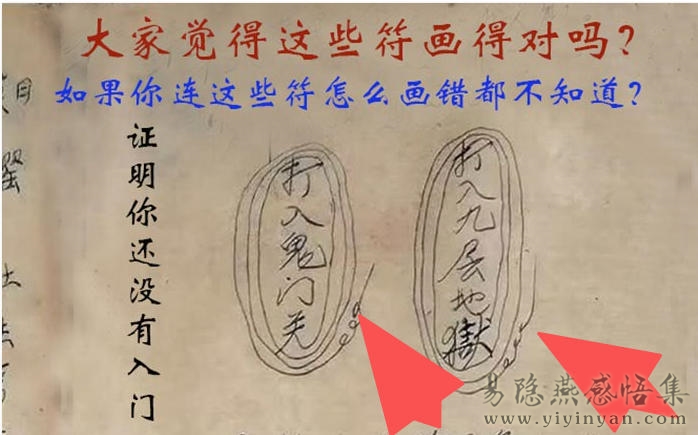 大家觉得这些符画得对吗?
如果你连这些符怎么画错都不知道?
证明你还没有入门
打入鬼门关
打入九层地獄
易隐燕感悟集
www.yiyinyan.com